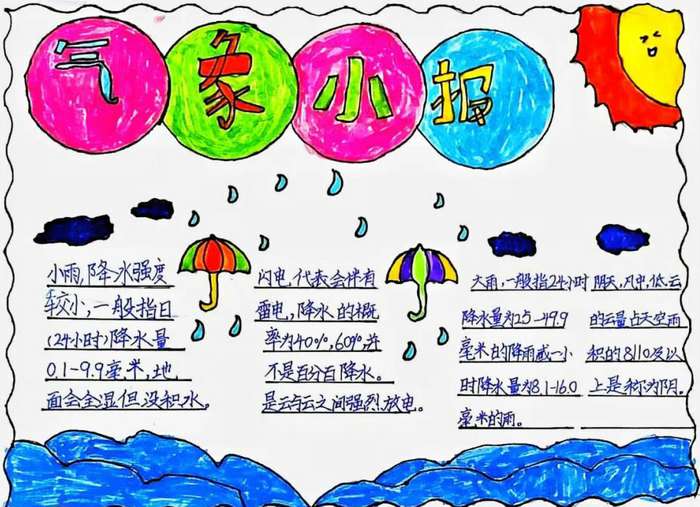 气象小报
小雨,降水强度
较小,一般指日
(24小时)降水量
0.1-9.9毫米,地
面会全湿但没积水。
闪电,代表会伴有
雷电,降水的概
率为40%,60%,并
不是百分百降水。
是云与云之间强烈放电。
大雨,一般指24小时
降水量为25-49.9
毫米的降雨或一小
时降水量为8.1-16.0
毫米的雨。
阴天,凡中,低云
的云量占天空面
积的8/10及以
上是称为阴。